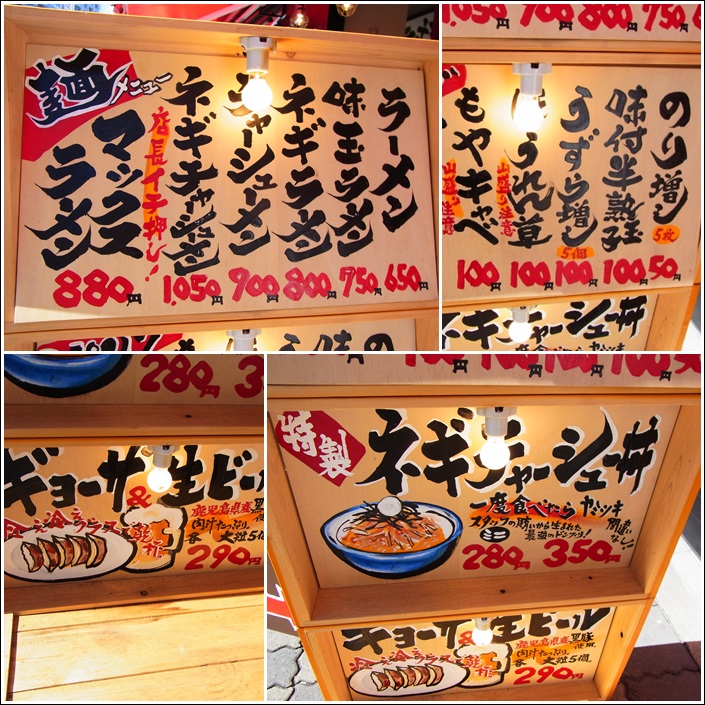 麺メニュー
ラーメン
650円
味玉ラーメン
750円
ネギラーメン
800円
チャーシューメン
900円
ネギチャーシューメン
1,050円
店長イチ押し!
マックス
ラーメン
880円
1,050円 700円 800円 750円
のり増し
5枚
50円
味付半熟玉子
100円
うずら増し
5個
100円
ほうれん草
山盛り注意
100円
もやキャベ
山盛り注意
100円
ネギチャーシュー丼
280円
ギョーザ&生ビール
鹿児島県産黒豚使用
肉汁たっぷり
各 大粒5個
290円
特製
ネギチャーシュー丼
一度食べたらヤミツキ
間違いなし!
スタッフの賄いから生まれた
最強のドンブリ!
ミニ
280円 350円
ギョーザ&生ビール
鹿児島県産黒豚使用
肉汁たっぷり
各 大粒5個
290円